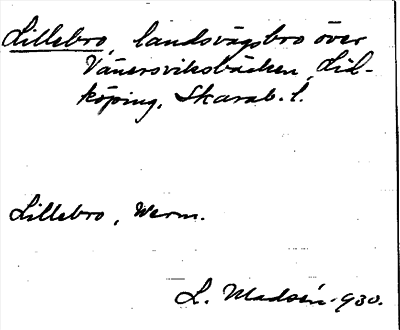 Lillebro, landsvägsbro över
Vänersviksbäcken, Lid-
köping, Skarab. l.
Lillebro, Werm.
L. Madsén. 930.